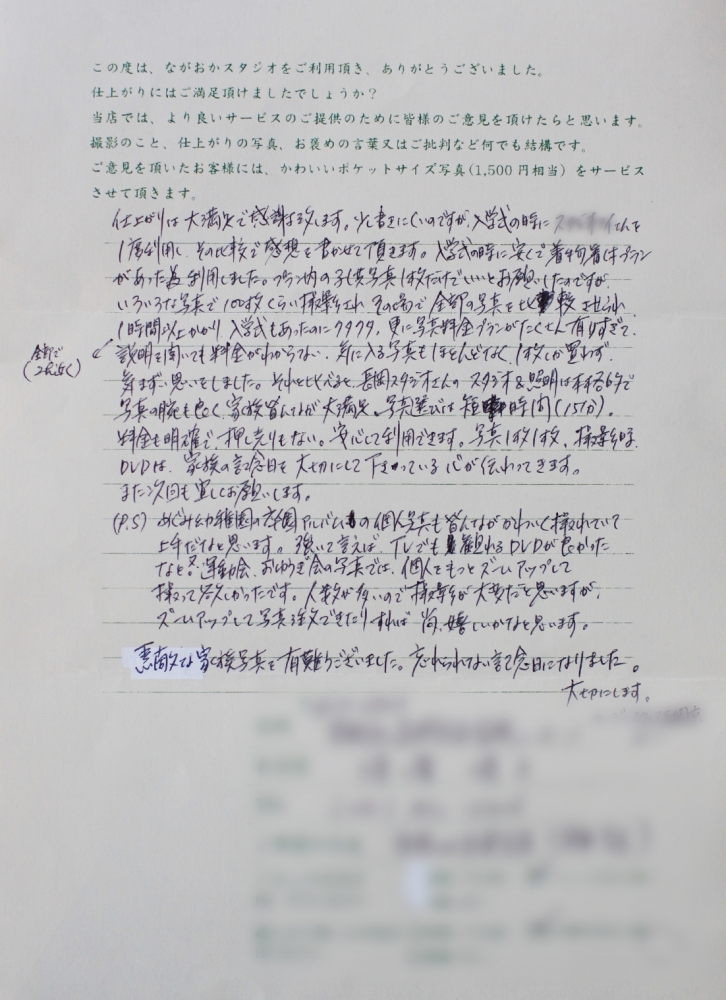 この度は、ながおかスタジオをご利用頂き、ありがとうございました。
仕上がりにはご満足頂けましたでしょうか？
当店では、より良いサービスのご提供のために皆様のご意見を頂けたらと思います。
撮影のこと、仕上がりの写真、お褒めの言葉又はご批判など何でも結構です。
ご意見を頂いたお客様には、かわいいポケットサイズ写真(1,500円相当）をサービス
させて頂きます。
仕上がりは大満足で感謝致します。少し書きにくいのですが、入学式の時に さんを
1度利用し、その比較で感想を書かせて頂きます。入学式の時に安くて着物着付プラン
があった為利用しました。プラン内の子供写真1枚だけでいいとお願いしたのですが、
いろいろな写真で100枚くらい撮影され、その場で全部の写真を比較させられ、
1時間以上かかり入学式もあったのにクタクタ。更に写真料金プランがたくさん有りすぎて、
全部で
(2択近く)
説明を聞いても料金がわからない、気に入る写真もほとんどなく、1枚しか買わず、
気まずい思いをしました。それと比べると、長岡スタジオさんのスタジオ&照明は本格的で
写真の腕も良く、家族皆んなが大満足。写真選びは短時間(15分)。
料金も明確で、押し売りもない。安心して利用できます。写真1枚1枚、撮影時
DVDは、家族の記念日を大切にして下さっている心が伝わってきます。
また次回も宜しくお願いします。
(P.S) めぐみ幼稚園の卒園アルバムの個人写真も皆んながかわいく撮れていて
上手だなと思います。強いて言えば、TVでも観れるDVDが良かった
なと。運動会、おゆうぎ会の写真では、個人をもっとズームアップして
撮って欲しかったです。人数が多いので撮影が大変だと思いますが、
ズームアップして写真注文できたりすれば尚、嬉しいかなと思います。
素敵な家族写真を有難うございました。忘れられない記念日になりました。
大切にします。